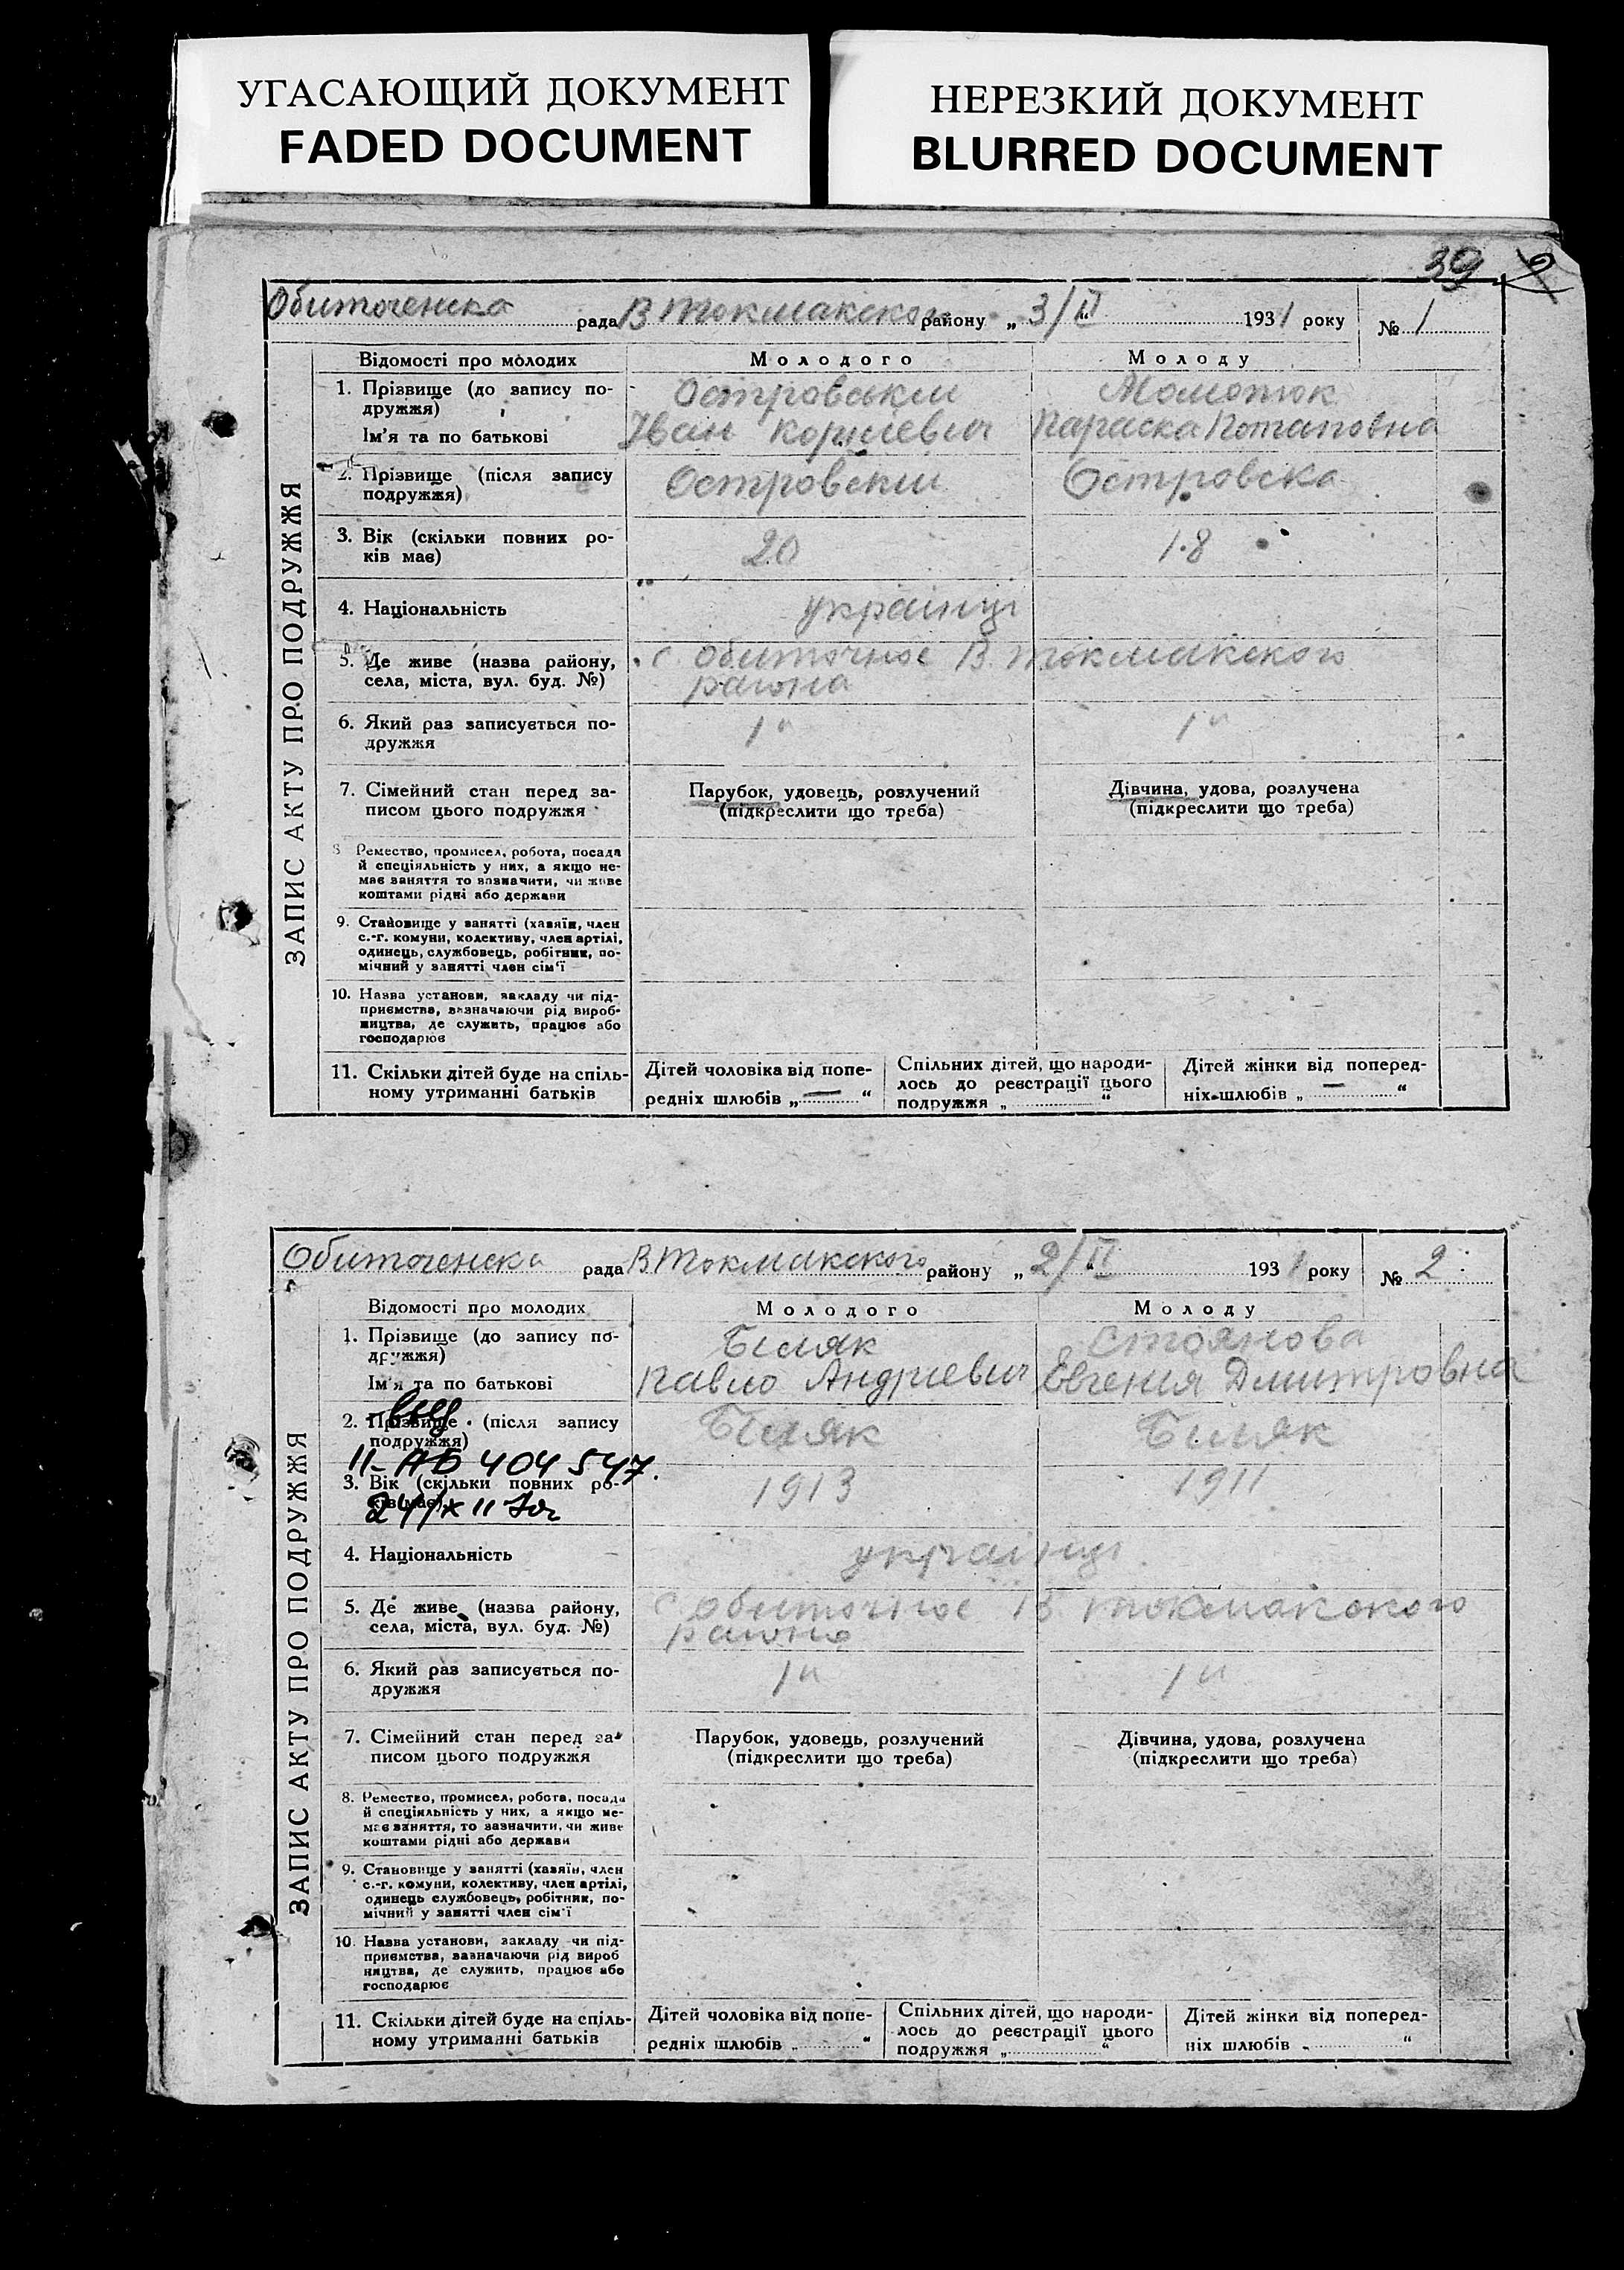 УГАСАЮЩИЙ ДОКУМЕНТ
FADED DOCUMENT
НЕРЕЗКИЙ ДОКУМЕНТ
BLURRED DOCUMENT
39 2
Обиточенска рада В Токмакского району „ 3/II 1931 року № 1
ЗАПИС АКТУ ПРО ПОДРУЖЖЯ
Відомості про молодих Молодого Молоду
1. Прізвище (до запису по- Островський
дружжя)
Ім'я та по батькові Іван Корниевич Параска Потаповна
2. Прізвище (після запису Островский Островска
подружжя)
3. Вік (скільки повних ро- 20 18
ків має)
4. Національність українці
5. Де живе (назва району, с. Обиточное В. Токмакского
села, міста, вул. буд. №) района
6. Який раз записується по- 1й 1й
дружжя
7. Сімейний стан перед за- Парубок, удовець, розлучений Дівчина, удова, розлучена
писом цього подружжя (підкреслити що треба) (підкреслити що треба)
8. Ремество, промисел, робота, посада
й спеціяльність у них, а якщо не-
має заняття то зазначити, чи живе
коштами рідні або держави
9. Становище у занятті (хазяїн, член
с.-г. комуни, колективу, член артілі,
одинець, службовець, робітник, по-
мічний у занятті член сім'ї
10. Назва установи, закладу чи під-
приємства, зазначаючи рід вироб-
ництва, де служить, працює або
господарює
11. Скільки дітей буде на спіль-
ному утриманні батьків
Дітей чоловіка від попе-
редніх шлюбів „ — “
Спільних дітей, що народи-
лось до реєстрації цього
подружжя „ “
Дітей жінки від поперед-
ніх шлюбів „ — “
Обиточенска рада В. Токмакского району „ 2/II 1931 року № 2
ЗАПИС АКТУ ПРО ПОДРУЖЖЯ
Відомості про молодих Молодого Молоду
1. Прізвище (до запису по- Біляк Стоянова
дружжя)
Ім'я та по батькові Павло Андриевич Евгения Дмитровна
2. Прізвище (після запису Біляк Біляк
подружжя)
II-АБ 404547.
3. Вік (скільки повних ро- 1913 1911
ків має)
4. Національність українці
5. Де живе (назва району, с Обиточное В Токмакского
села, міста, вул. буд. №) района
6. Який раз записується по- 1й 1й
дружжя
7. Сімейний стан перед за- Парубок, удовець, розлучений Дівчина, удова, розлучена
писом цього подружжя (підкреслити що треба) (підкреслити що треба)
8. Ремество, промисел, робота, посада
й спеціяльність у них, а якщо не-
має заняття, то зазначити, чи живе
коштами рідні або держави
9. Становище у занятті (хазяїн, член
с.-г. комуни, колективу, член артілі,
одинець службовець, робітник, по-
мічний у занятті член сім'ї
10. Назва установи, закладу чи під-
приємства, зазначаючи рід вироб
ництва, де служить, працює або
господарює
11. Скільки дітей буде на спіль-
ному утриманні батьків
Дітей чоловіка від попе-
редніх шлюбів „ “
Спільних дітей, що народи-
лось до реєстрації цього
подружжя „ “
Дітей жінки від поперед-
ніх шлюбів „ “